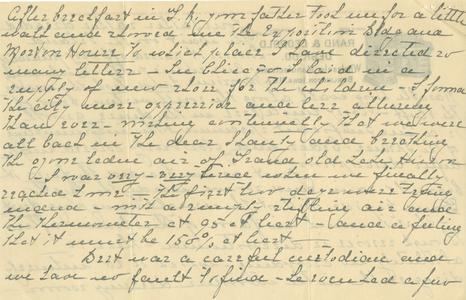 After breakfast in G. R. your father took us for a little
walk and showed us the Exposition Bldg and
Morton House to which place I have directed so
many letters - In Chicago I laid in a
supply of new shoes for the children - I found
the city more oppressive and less alluring
than ever - wishing continually that we were
all back in the dear Shanty and breathing
the ozone laden air of Grand old Lake Huron
- I was very - very tired when we finally
reached home - The first few days were trying
indeed - with a simply stifling air and
the thermometer at 95 at least - (and a feeling
that it must be 150% at least
Burt was a careful custodian and
we have no fault to find - he revealed a few